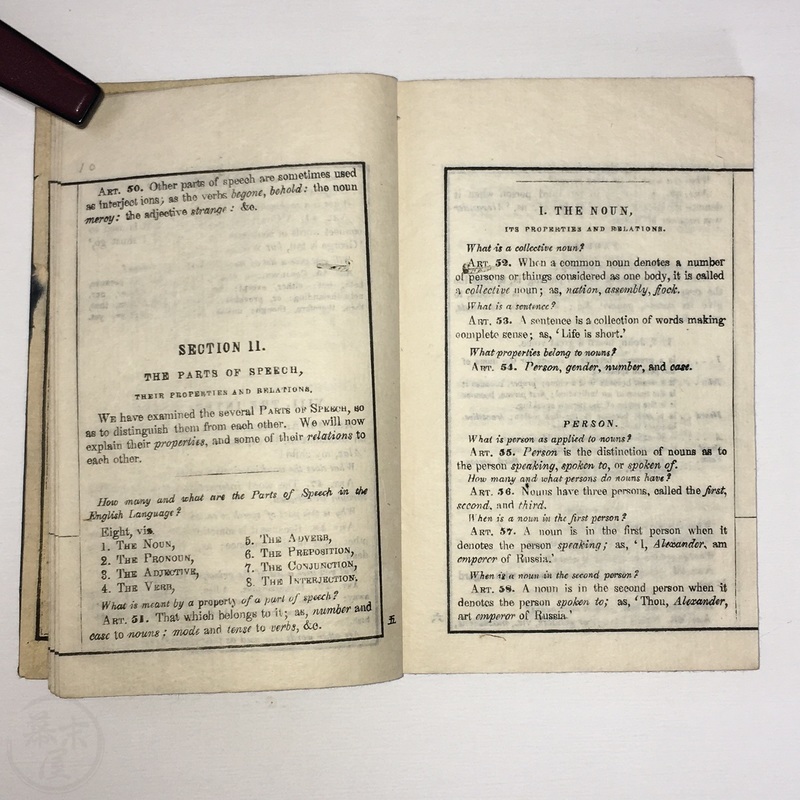 10
ART. 50. Other parts of speech are sometimes used
as interjections; as the verbs begone, behold: the noun
mercy: the adjective strange: &c.
SECTION II.
THE PARTS OF SPEECH,
THEIR PROPERTIES AND RELATIONS.
WE have examined the several PARTS OF SPEECH, so
as to distinguish them from each other. We will now
explain their properties, and some of their relations to
each other.
How many and what are the Parts of Speech in the
English Language?
Eight, viz.
1. THE NOUN,
2. THE PRONOUN,
3. THE ADJECTIVE,
4. THE VERB,
5. THE ADVERB,
6. THE PREPOSITION,
7. THE CONJUNCTION,
8 THE INTERJECTION.
What is meant by a property of a part of speech?
ART. 51. That which belongs to it; as, number and
case to nouns; mode and tense to verbs, &c.
五
I. THE NOUN,
ITS PROPERTIES AND RELATIONS.
What is a collective noun?
ART. 52. When a common noun denotes a number
of persons or things considered as one body, it is called
a collective noun; as, nation, assembly, flock.
What is a sentence?
ART. 53. A sentence is a collection of words making
complete sense; as, 'Life is short.'
What properties belong to nouns?
ART. 54. Person, gender, number, and case.
PERSON.
What is person as applied to nouns?
ART. 55. Person is the distinction of nouns as to
the person speaking, spoken to, or spoken of.
How many and what persons do nouns have?
ART. 56. Nouns have three persons, called the first,
second, and third.
When is a noun in the first person?
ART. 57. A noun is in the first person when it
denotes the person speaking; as, 'I, Alexander, am
emperor of Russia.'
When is a noun in the second person?
ART. 58. A noun is in the second person when it
denotes the person spoken to; as, 'Thou, Alexander,
art emperor of Russia.'
幕末屋